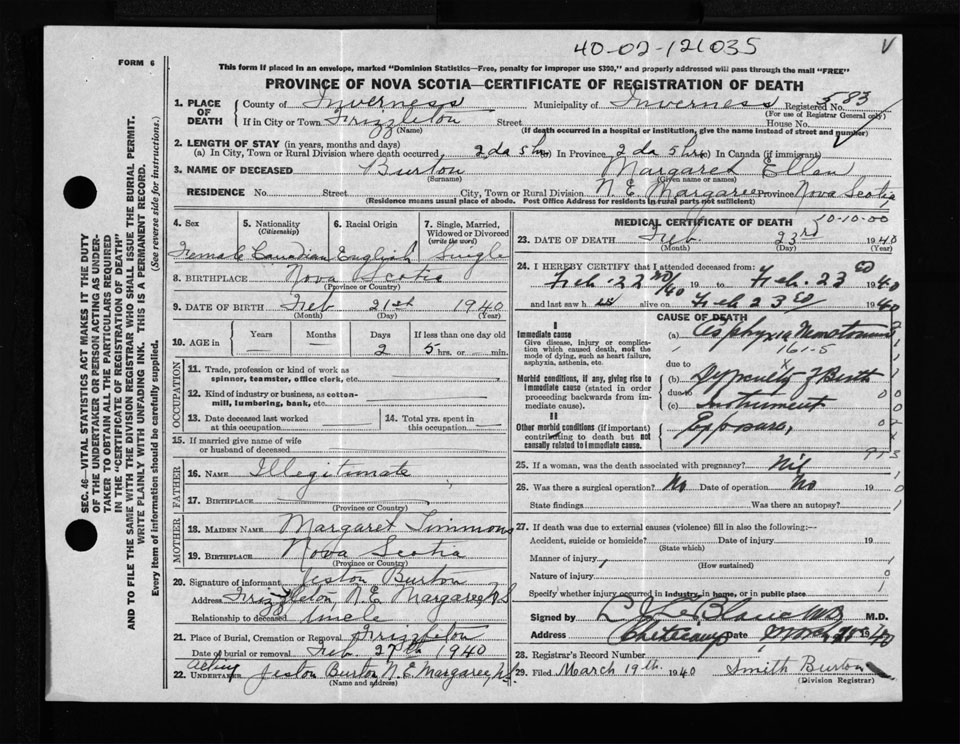 40-02-121035
V
FORM 6
This form if placed in an envelope, marked "Dominion Statistics—Free, penalty for improper use $300," and properly addressed will pass through the mail "FREE"
PROVINCE OF NOVA SCOTIA—CERTIFICATE OF REGISTRATION OF DEATH
SEC. 46—VITAL STATISTICS ACT MAKES IT THE DUTY
OF THE UNDERTAKER OR PERSON ACTING AS UNDER-
TAKER TO OBTAIN ALL THE PARTICULARS REQUIRED
IN THE "CERTIFICATE OF REGISTRATION OF DEATH"
AND TO FILE THE SAME WITH THE DIVISION REGISTRAR WHO SHALL ISSUE THE BURIAL PERMIT.
WRITE PLAINLY WITH UNFADING INK. THIS IS A PERMANENT RECORD.
Every item of information should be carefully supplied. (See reverse side for instructions.)
1. PLACE OF DEATH County of Inverness Municipality of Inverness Registered No. 583
(For use of Registrar General only)
If in City or Town Frizzleton Street House No.
(Name) (If death occurred in a hospital or institution, give the name instead of street and number)
2. LENGTH OF STAY (in years, months and days)
(a) In City, Town or Rural Division where death occurred 2 da 5 hrs (b) In Province 2 da 5 hrs (c) In Canada (if immigrant)
3. NAME OF DECEASED Burton Margaret Ellen
(Surname) (Given name or names)
RESIDENCE No. Street City, Town or Rural Division N. E. Margaree Province Nova Scotia
(Residence means usual place of abode. Post Office Address for residents in rural parts not sufficient)
4. Sex 5. Nationality (Citizenship) 6. Racial Origin 7. Single, Married, Widowed or Divorced (write the word)
Female Canadian English Single
8. BIRTHPLACE Nova Scotia
(Province or Country)
9. DATE OF BIRTH Feb 21st 1940
(Month) (Day) (Year)
10. AGE in Years Months Days If less than one day old
2 5 hrs. or min.
OCCUPATION
11. Trade, profession or kind of work as
spinner, teamster, office clerk, etc.
12. Kind of industry or business, as cotton-
mill, lumbering, bank, etc.
13. Date deceased last worked at this occupation 14. Total yrs. spent in this occupation
15. If married give name of wife
or husband of deceased
FATHER
16. NAME Illegitimate
17. BIRTHPLACE
(Province or Country)
MOTHER
18. MAIDEN NAME Margaret Timmons
19. BIRTHPLACE Nova Scotia
(Province or Country)
20. Signature of informant Jeston Burton
Address Frizzleton, N. E. Margaree, N.S.
Relationship to deceased Uncle
21. Place of Burial, Cremation or Removal Frizzleton
Date of burial or removal Feb. 27th 1940
Acting
22. UNDERTAKER Jeston Burton N. E. Margaree, N.S.
(Name and address)
MEDICAL CERTIFICATE OF DEATH 10-10-00
23. DATE OF DEATH Feb. 23rd 1940
(Month) (Day)
24. I HEREBY CERTIFY that I attended deceased from:
Feb. 22nd/40 19 to Feb. 23rd 1940
and last saw h alive on Feb 23rd 1940
CAUSE OF DEATH
I
Immediate cause
Give disease, injury or complica-
tion which caused death, not the
mode of dying, such as heart failure,
asphyxia, asthenia, etc.
(a) Asphyxia
161-5
due to
Morbid conditions, if any, giving rise to
immediate cause (stated in order
proceeding backwards from im-
mediate cause).
(b) Difficulty of Birth
due to
(c) Instrument
II
Other morbid conditions (if important)
contributing to death but not
causally related to immediate cause.
Exposure,
25. If a woman, was the death associated with pregnancy? Nil
26. Was there a surgical operation? No Date of operation No 19
State findings Was there an autopsy?
27. If death was due to external causes (violence) fill in also the following:—
Accident, suicide or homicide? Date of injury 19
(State which)
Manner of injury
(How sustained)
Nature of injury
Specify whether injury occurred in industry, in home, or in public place
Signed by LeBlanc MD M.D.
Address Cheticamp Date 1940
28. Registrar's Record Number
29. Filed March 19th. 1940 Smith Burton
(Division Registrar)